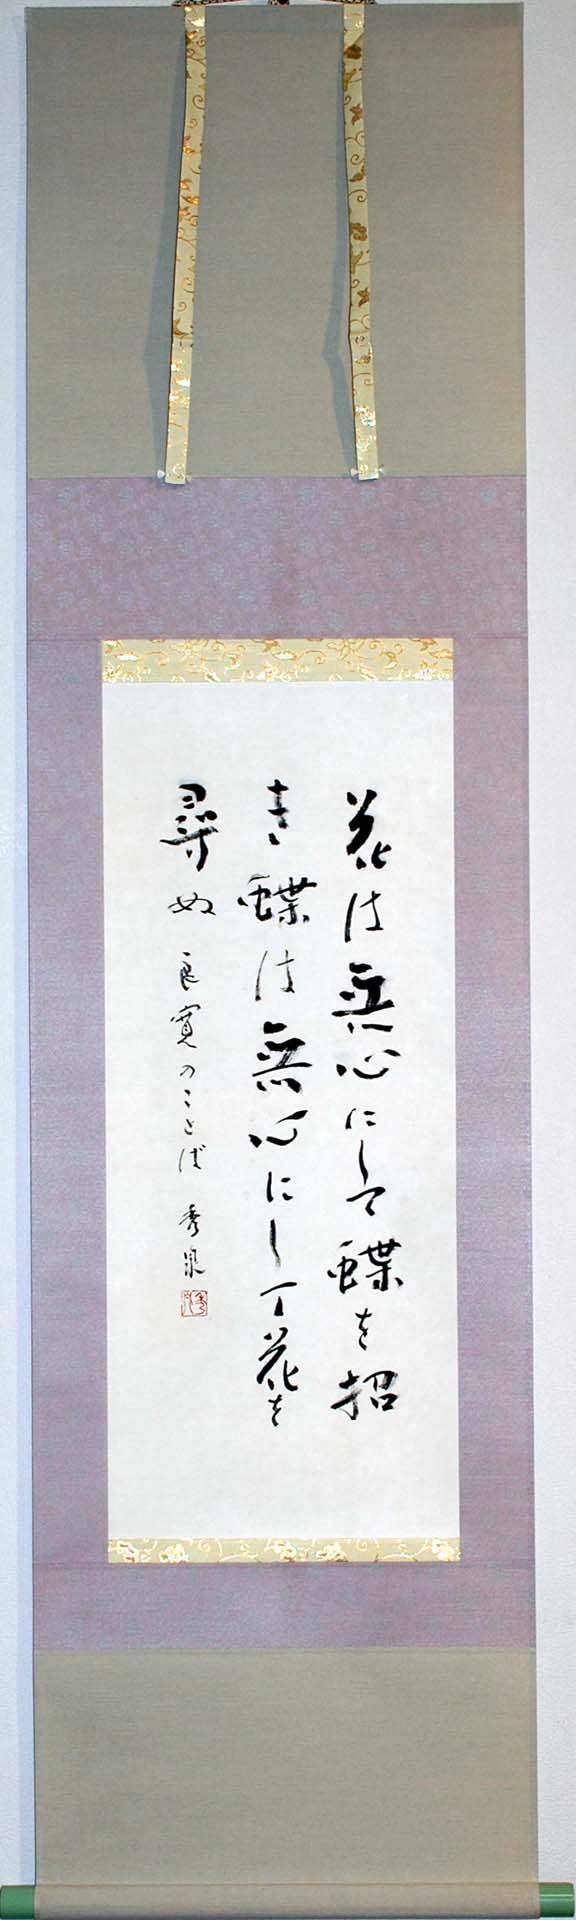 花は無心にして蝶を招
き蝶は無心にして花を
尋ぬ 良寛のことば 秀泉